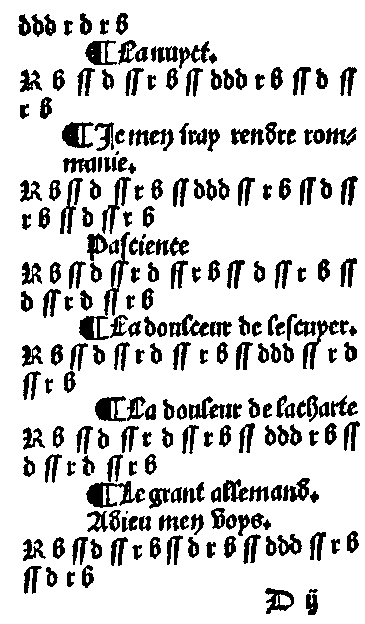 ddd r d r b
¶ La nuyct.
R b ſſ d ſſ r b ſſ ddd r b ſſ d ſſ
r b
¶ Je men iray rendre rom⸗
manie.
R b ſſ d ſſ r b ſſ ddd ſſ r b ſſ d ſſ
r b ſſ d ſſ r b
Paſciente
R b ſſ d ſſ r d ſſ r b ſſ d ſſ r b ſſ
d ſſ r d ſſ r b
¶ La doulceur de leſcuyer.
R b ſſ d ſſ r d ſſ r b ſſ ddd ſſ r d
ſſ r b
¶ La douleur de lacharte
R b ſſ d ſſ r d ſſ r b ſſ ddd r b ſſ
d ſſ r d ſſ r b
¶ Le grant allemand.
Adieu men voys.
R b ſſ d ſſ r b ſſ d r b ſſ ddd ſſ r b
ſſ d r b
D ij